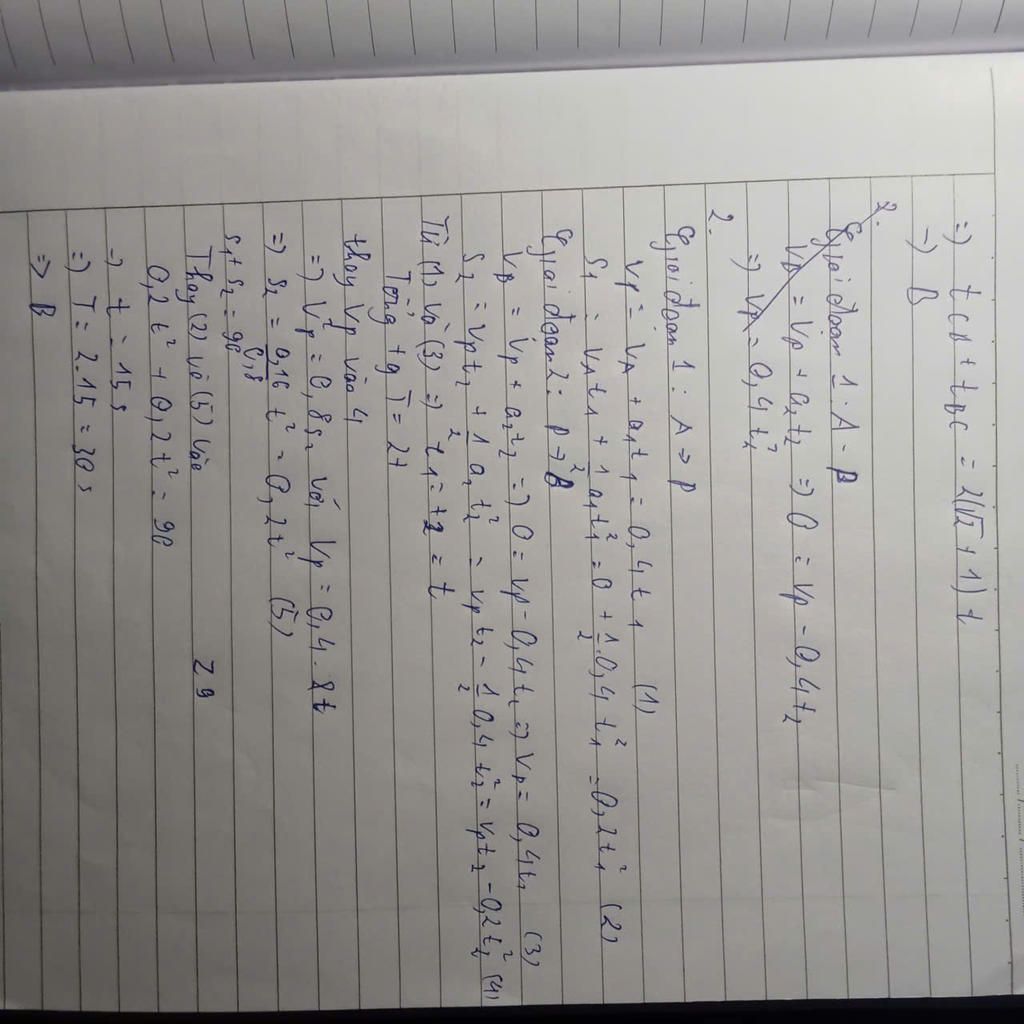 =) tCB + tBC = 2(√2 + 1) t
=) B
2.
Giai đoạn 1: A - B
VB = Vp + a2t2 =) 0 = Vp - 0,4t2
=) Vp = 0,4 t2
2.
Giai đoạn 1: A → P
Vp = VA + a1t1 = 0,4 t1 (1)
S1 = VA t1 + 1/2 a1t1² = 0 + 1/2 . 0,4 t1² = 0,2t1² (2)
Giai đoạn 2: P → B
VB = Vp + a2t2 =) 0 = Vp - 0,4t2 =) Vp = 0,4t2 (3)
S2 = Vpt2 + 1/2 a2 t2² = Vp t2 - 1/2 0,4 t2² = Vpt2 - 0,2t2² (4)
Từ (1) và (3) =) t1 = t2 = t
Tổng tg T = 2t
thay Vp vào 4
=) Vp² = 0,8s2 với Vp = 0,4 . t
=) S2 = 0,16/0,8 t² = 0,2t² (5)
S1 + S2 = 90
Thay (2) và (5) vào
29
0,2t² + 0,2t² = 90
=) t = 15 s
=) T = 2.15 = 30 s
=) B